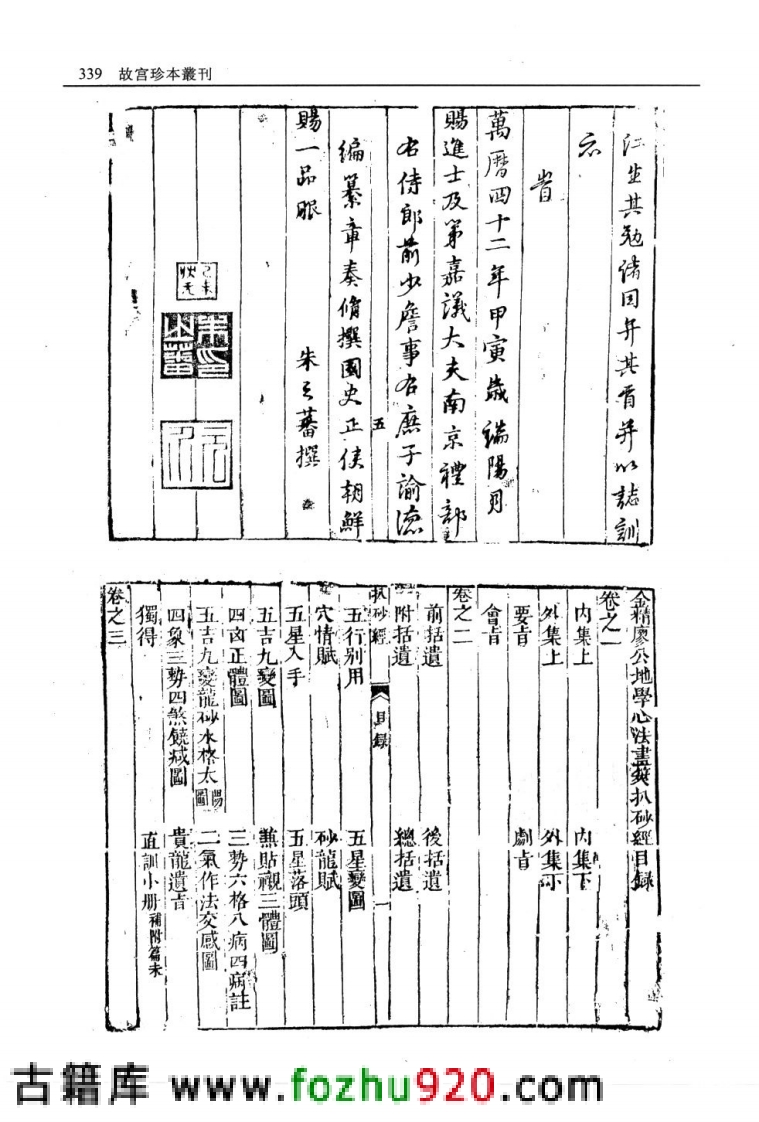 339 故宮珍本叢刊
江生其勉諸因并其旨并以誌訓
示
旹
萬曆四十二年甲寅歲端陽月
賜進士及第嘉議大夫南京禮部
右侍郎前少詹事右庶子諭德
五
編纂章奏脩撰國史正使朝鮮
賜一品服
朱之蕃撰
金精廖公地學心法畫筴扒砂經目錄
卷之一
內集上 內集下
外集上 外集下
要旨 劇旨
會旨
卷之二
前括遺 後括遺
附括遺 總括遺
扒砂經 目錄 一
五行別用 五星變圖
穴情賦 砂龍賦
五星入手 五星落頭
五吉九變圖 兼貼襯三體圖
四凶正體圖 三勢六格八病四病註
五吉九變龍砂水格太陽圖 二氣作法交感圖
四象三勢四煞饒減圖 貴龍遺旨
獨得 直訓小册補附篇末
卷之三
古籍库 www.fozhu920.com